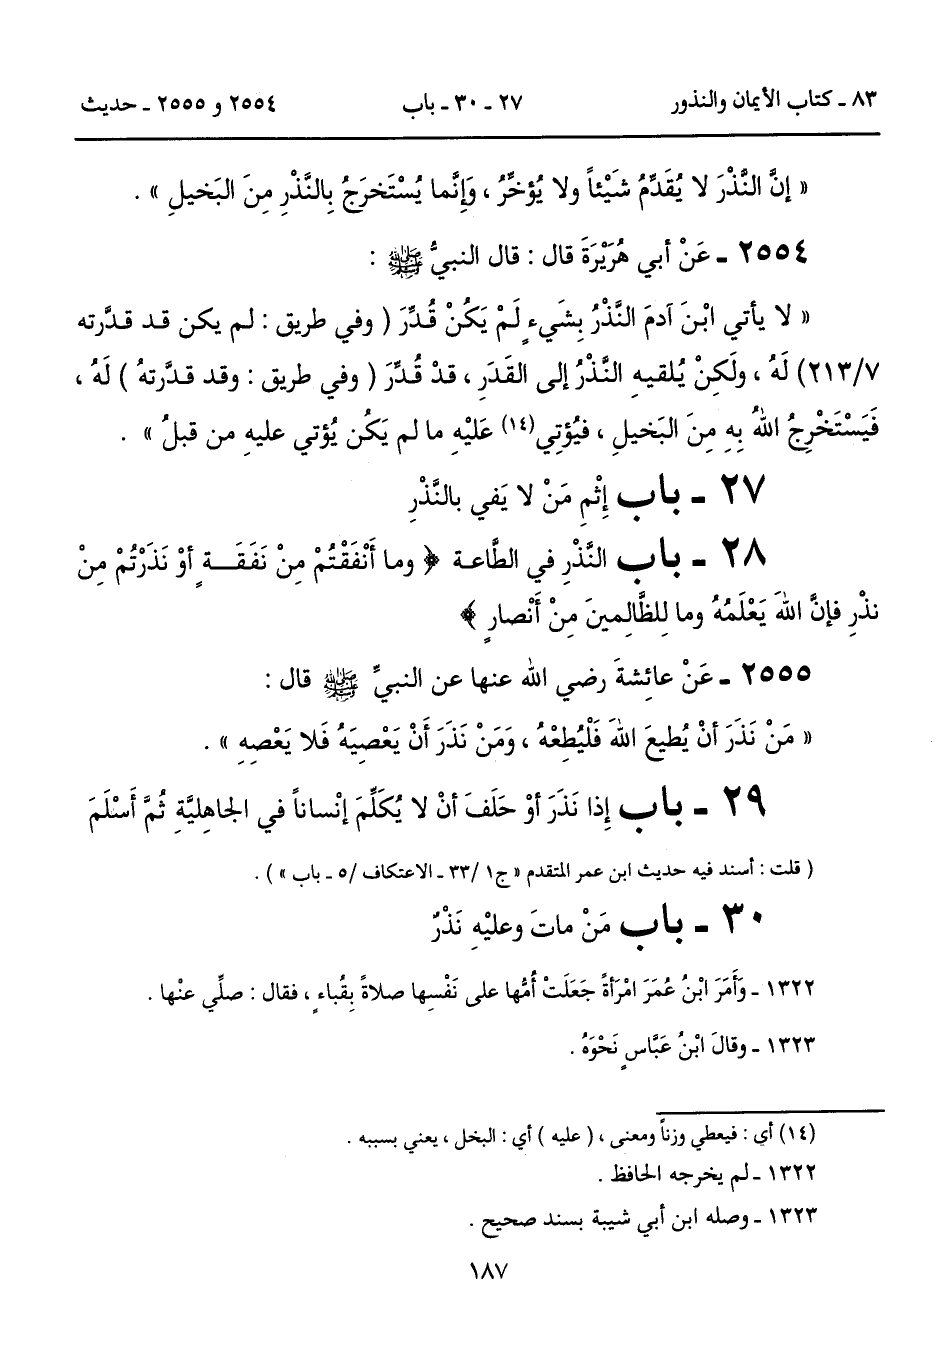 ٨٣ ـ كتاب الأيمان والنذور ٢٧ ـ ٣٠ ـ باب ٢٥٥٤ و ٢٥٥٥ ـ حديث
« إنَّ النَّذْرَ لا يُقَدِّمُ شَيْئاً ولا يُؤخِّرُ ، وَإنَّما يُسْتَخرَجُ بِالنَّذْرِ مِنَ البَخيلِ » .
٢٥٥٤ ـ عَنْ أبي هُرَيْرَةَ قال : قال النبيُّ ﷺ :
« لا يأتي ابْنَ آدمَ النَّذْرُ بِشَيءٍ لَمْ يَكُنْ قُدِّرَ ( وفي طريق : لم يكن قد قدَّرته
٢١٣/٧) لَهُ ، ولَكِنْ يُلقيهِ النَّذْرُ إلى القَدَرِ ، قدْ قُدِّرَ ( وفي طريق : وقد قدَّرتهُ ) لَهُ ،
فَيَسْتَخْرِجُ اللهُ بِهِ مِنَ البَخيلِ ، فيُؤتِي(١٤) عَلَيْهِ ما لم يَكُن يُؤتي عليهِ من قبلُ » .
٢٧ ـ باب إثْمِ مَنْ لا يَفي بالنَّذْرِ
٢٨ ـ باب النَّذْرِ في الطَّاعة ﴿ وما أَنْفَقْتُمْ مِنْ نَفَقَـــةٍ أوْ نَذَرْتُمْ مِنْ
نذْرٍ فإنَّ اللهَ يَعْلَمُهُ وما لِلظَّالِمينَ مِنْ أَنْصارٍ ﴾
٢٥٥٥ ـ عَنْ عائِشةَ رضي الله عنها عن النبيِّ ﷺ قال :
« مَنْ نَذَرَ أنْ يُطيعَ اللهَ فَلْيُطِعْهُ ، وَمَنْ نَذَرَ أَنْ يَعْصِيَهُ فَلا يَعْصِهِ » .
٢٩ ـ باب إذا نَذَرَ أوْ حَلَفَ أنْ لا يُكَلِّمَ إنْساناً في الجاهليَّةِ ثُمَّ أَسْلَمَ
( قلت : أسند فيه حديث ابن عمر المتقدم « ج١ /٣٣ ـ الاعتكاف /٥ ـ باب » ) .
٣٠ ـ باب مَنْ ماتَ وعليْهِ نَذْرٌ
١٣٢٢ ـ وَأَمَرَ ابْنُ عُمَرَ امْرَأةً جَعَلَتْ أُمُّها على نَفْسِها صلاةً بِقُباءٍ ، فقال : صلِّي عنْها .
١٣٢٣ ـ وقالَ ابْنُ عَبَّاسٍ نَحْوَهُ .
(١٤) أي : فيعطي وزناً ومعنى ، ( عليه ) أي : البخل ، يعني بسببه .
١٣٢٢ ـ لم يخرجه الحافظ .
١٣٢٣ ـ وصله ابن أبي شيبة بسند صحيح .
١٨٧